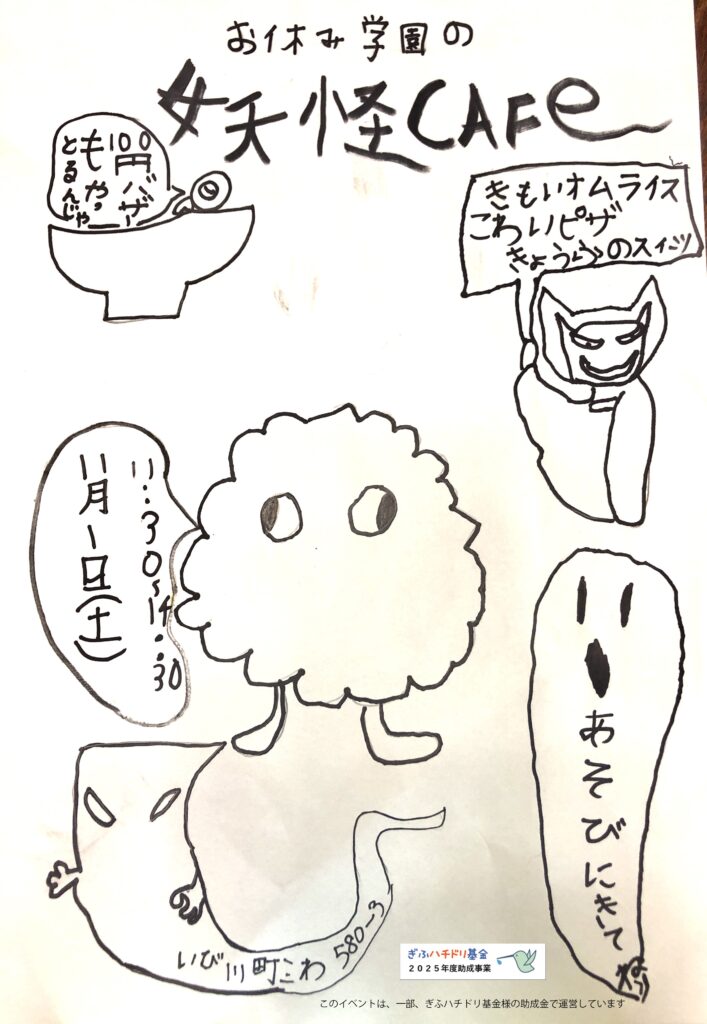 お休み学園の
妖怪CAFe
100円バザー
もやっ
とるんじゃー
きもいオムライス
こわいピザ
きょうふのスイーツ
11月1日(土)
11:30~14:30
あそびにきて
ねっ
いび川町こわ580-3
ぎふハチドリ基金
2025年度助成事業
このイベントは、一部、ぎふハチドリ基金様の助成金で運営しています